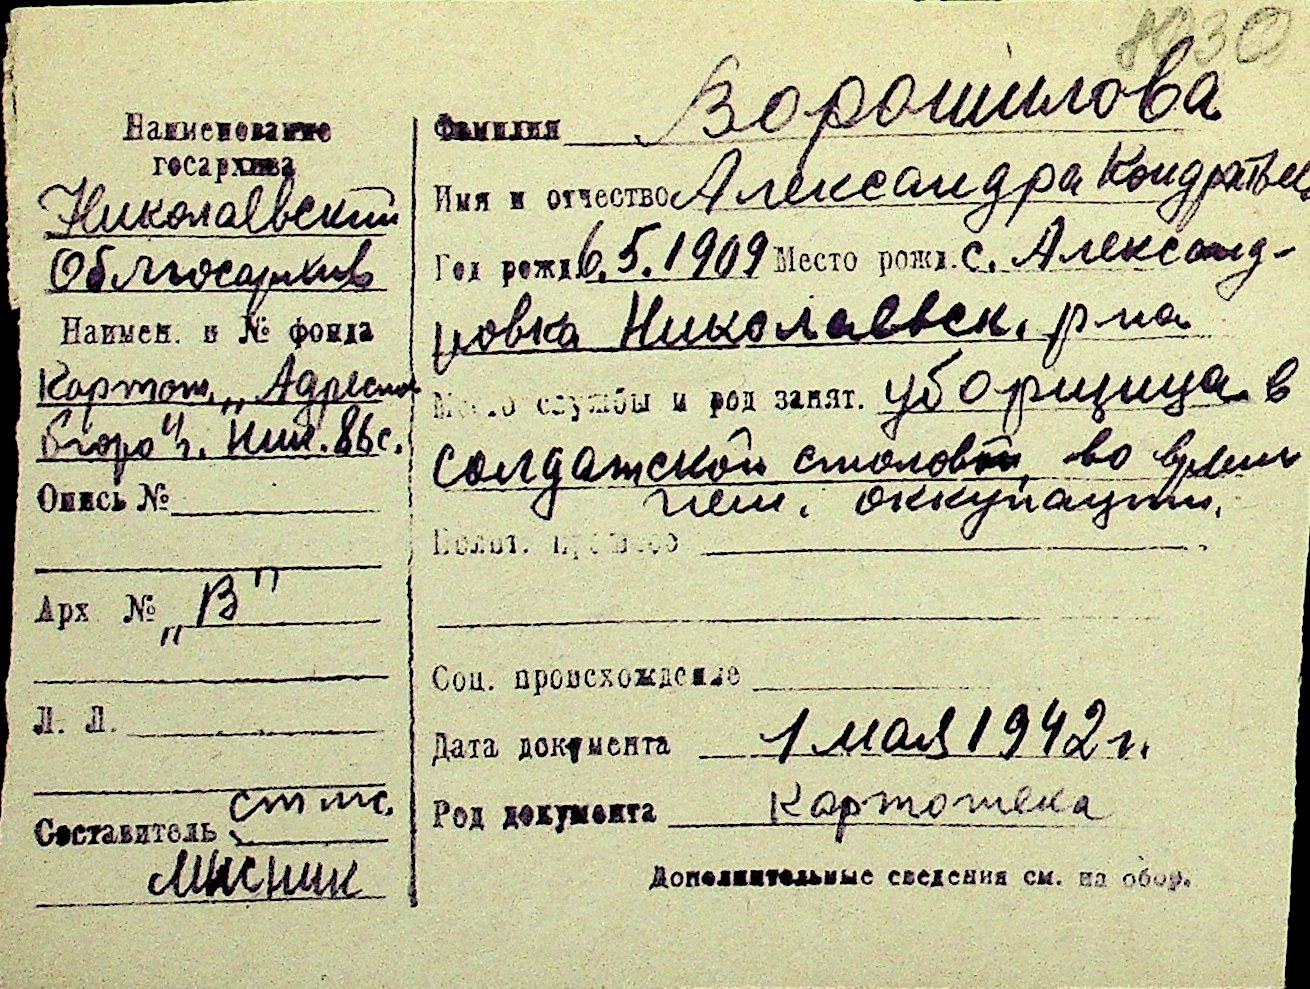 Ворошилова
Фамилия
Наименование
госархива
Николаевский
Облгосархив
Наимен. и № фонда
Картот. „Адресно
бюро" г. Ник. 86с.
Опись №
Арх № „В"
Л. Л.
Составитель ст. нс.
Мысник
Имя и отчество Александра Кондратьев
Год рожд. 6.5.1909 Место рожд. с. Александ-
ровка Николаевск. р-на
Место службы и род занят. уборщица в
солдатской столовой, во время
нем. оккупации.
Полит. прошлое
Соц. происхождение
Дата документа 1 мая 1942 г.
Род документа картотека
Дополнительные сведения см. на обор.